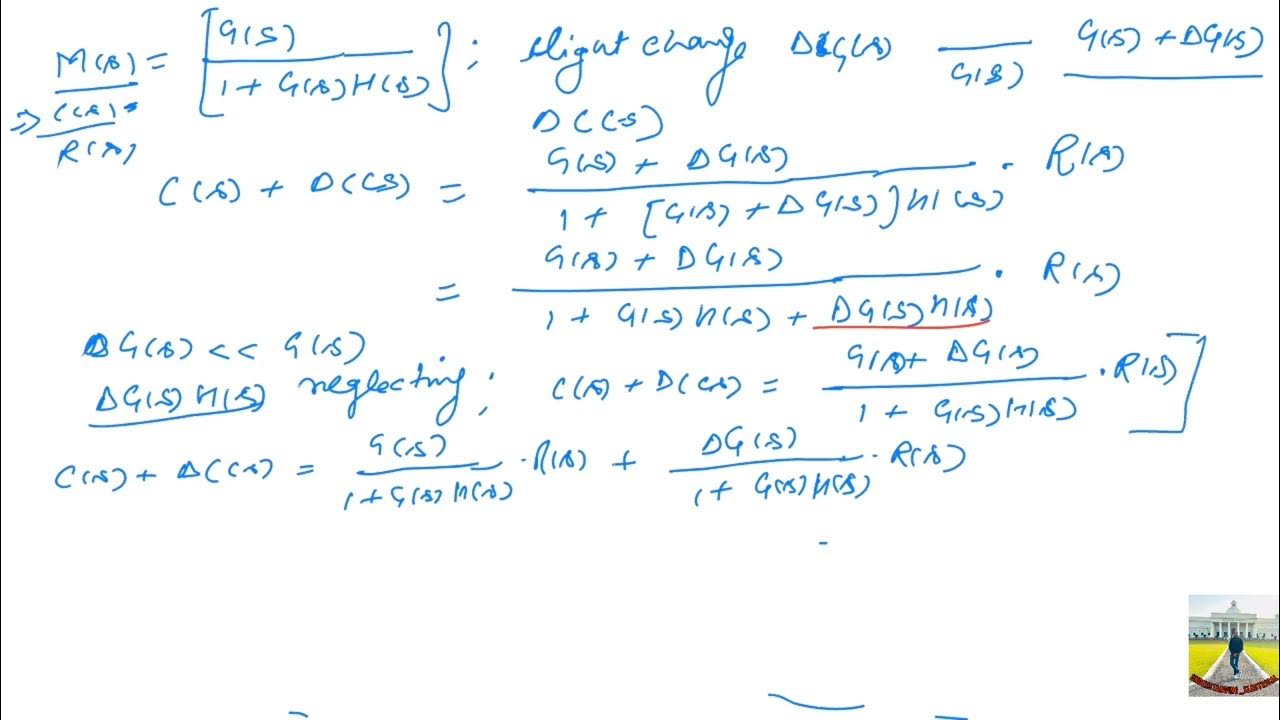 M(s) = [G(s) / 1 + G(s)H(s)] ; slight change ΔG(s) G(s) G(s) + ΔG(s)
⇒ C(s) = / R(s) ΔC(s)
C(s) + ΔC(s) = G(s) + ΔG(s) / 1 + [G(s) + ΔG(s)]H(s) . R(s)
= G(s) + ΔG(s) / 1 + G(s)H(s) + ΔG(s)H(s) . R(s)
ΔG(s) << G(s)
ΔG(s)H(s) neglecting ; C(s) + ΔC(s) = G(s) + ΔG(s) / 1 + G(s)H(s) . R(s)]
C(s) + ΔC(s) = G(s) / 1 + G(s)H(s) . R(s) + ΔG(s) / 1 + G(s)H(s) . R(s)